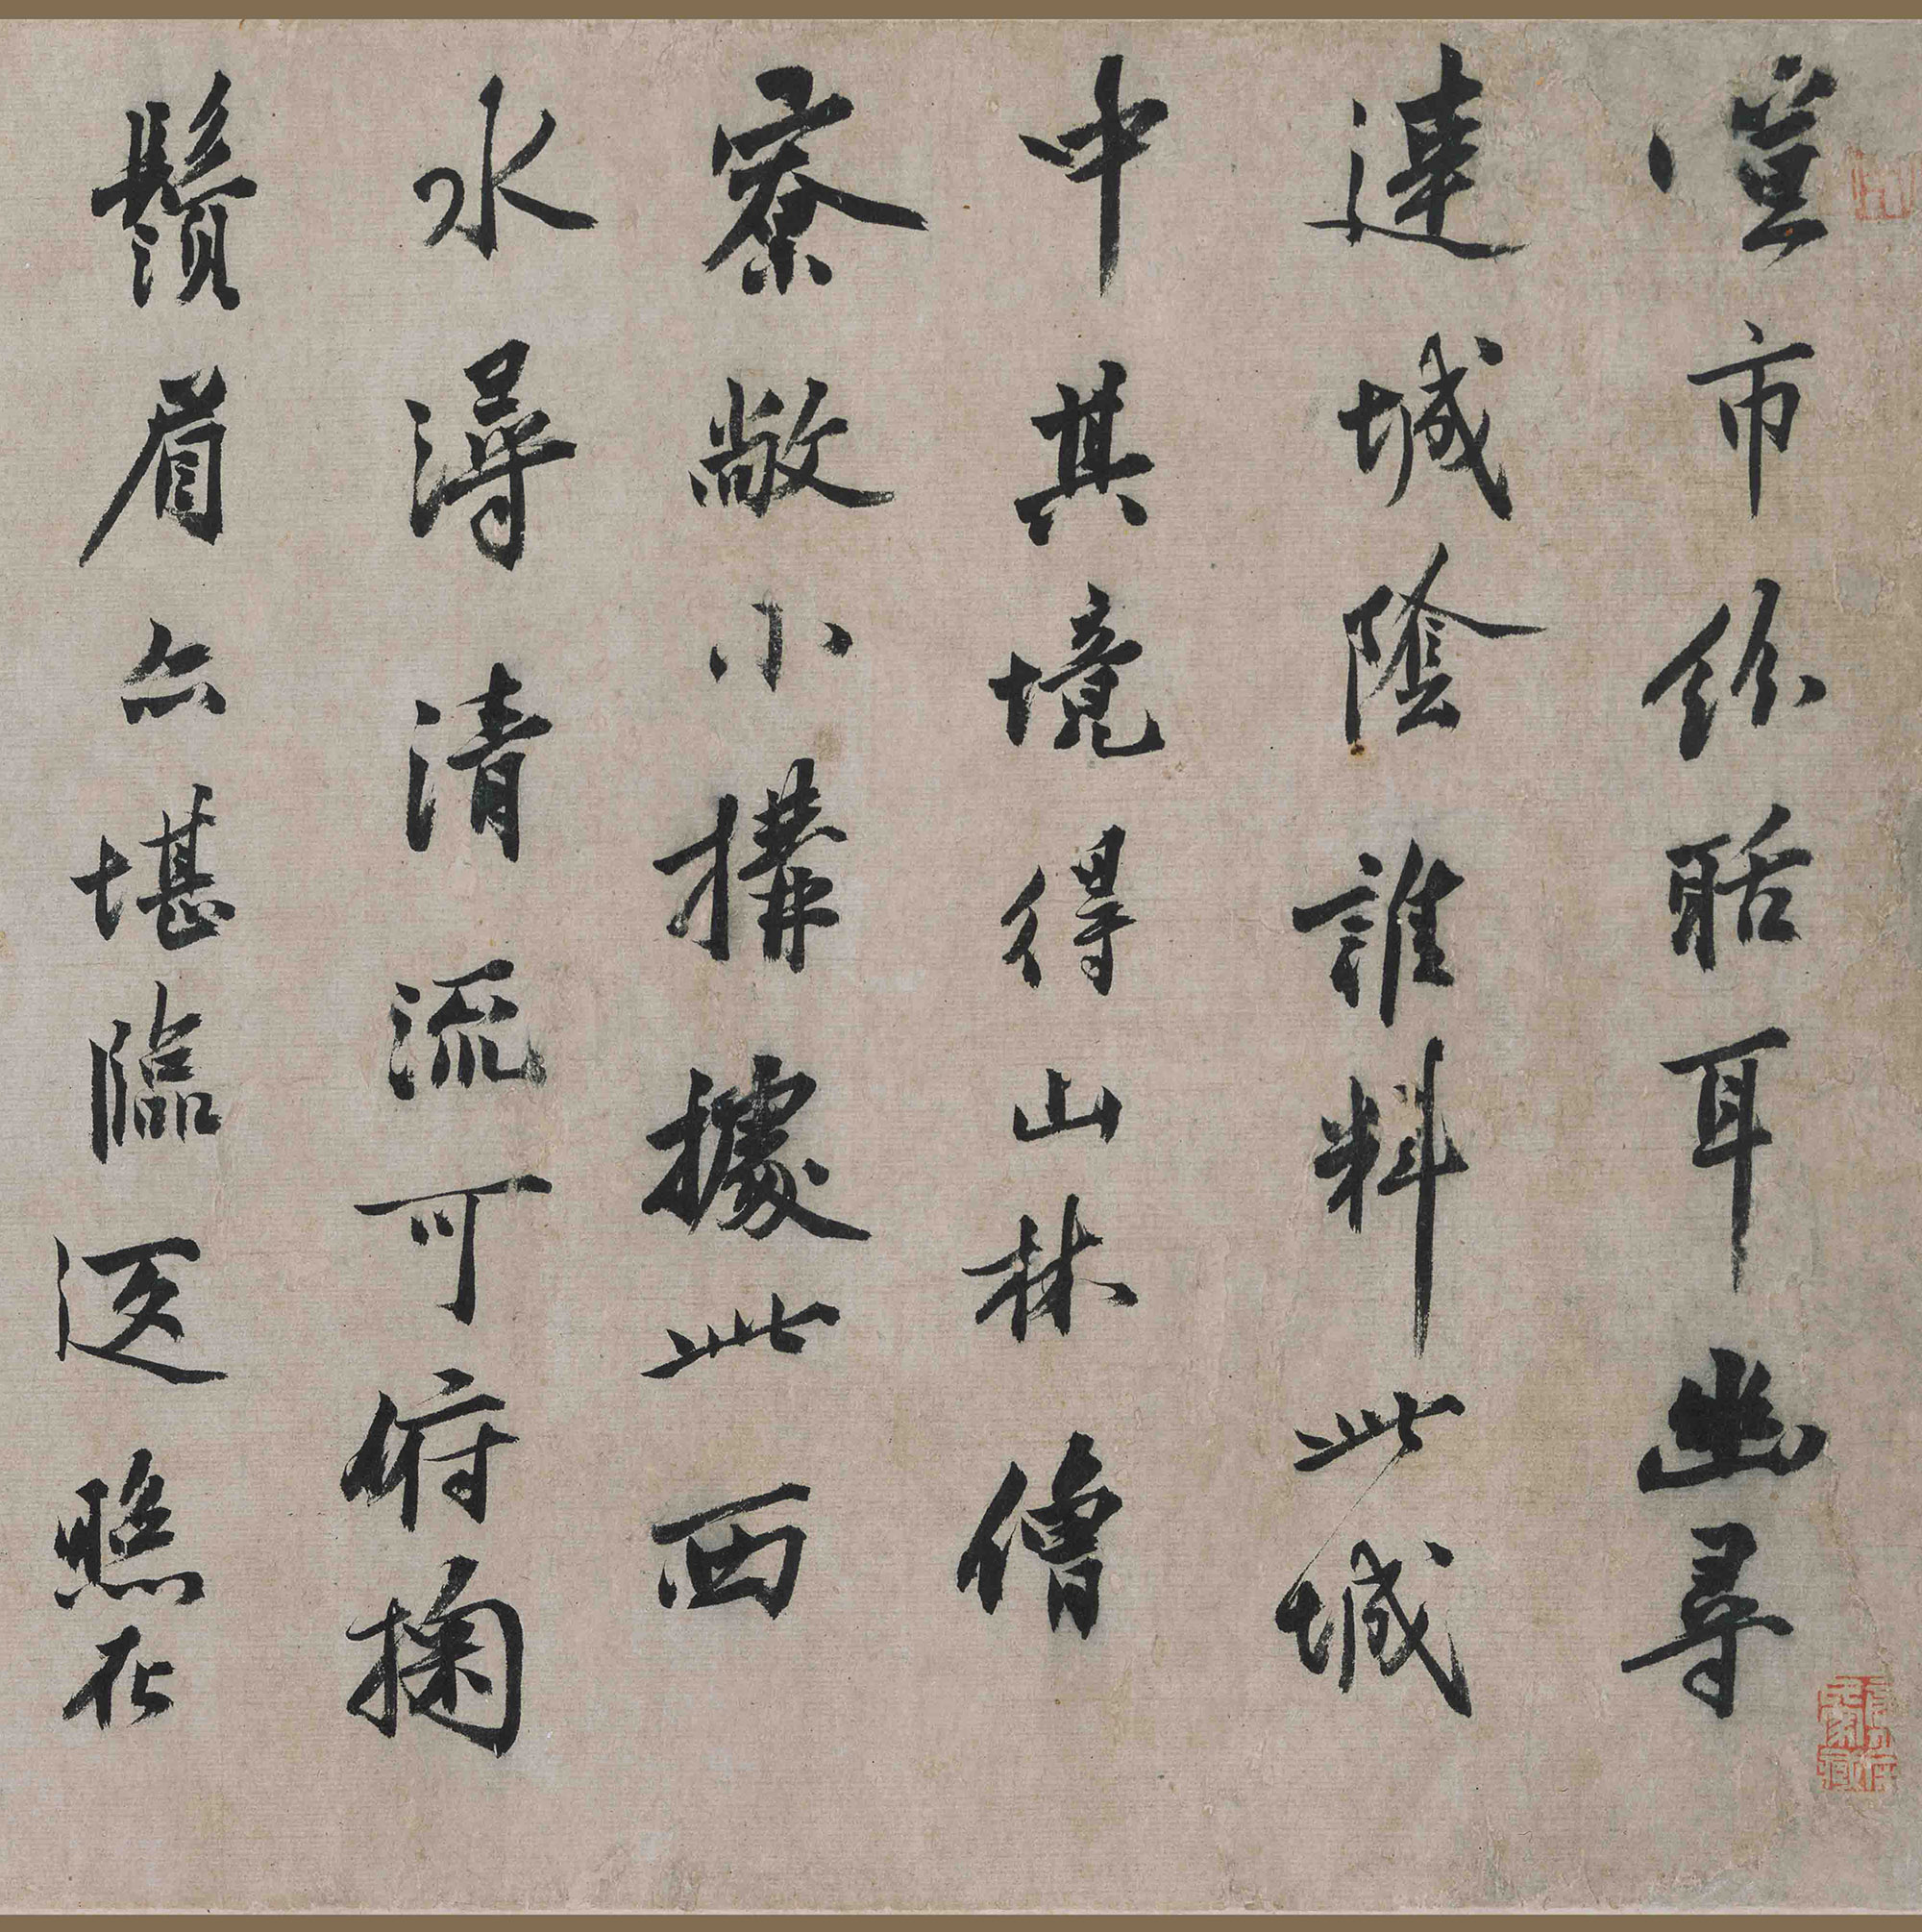 喧市紛聒耳幽尋
達城陰誰料此城
中其境得山林僧
寮敞小搆據此西
水潯清流可俯掬
鬚眉亦堪臨返照在